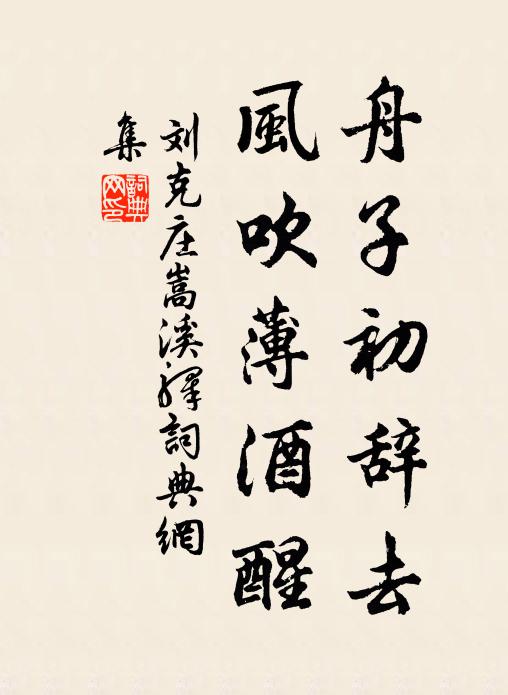 舟子初辞去
風吹薄酒醒
刘克庄嵩溪驛詞典網
集
詞典
网印